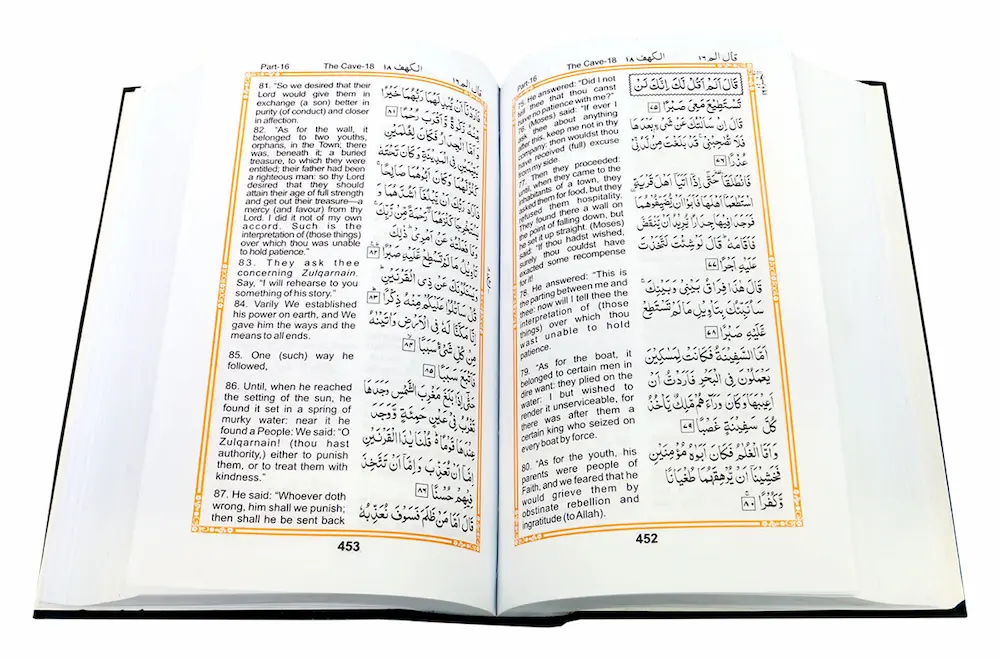 Part-16 The Cave-18 الكهف ١٨ قال الم ١٦
75. He answered: "Did I not
tell thee that thou canst
have no patience with me?"
76. (Moses) said: "If ever I
ask thee about anything
after this, keep me not in thy
company: then wouldst thou
have received (full) excuse
from my side.
77. Then they proceeded:
till, when they came to the
inhabitants of a town, they
asked them for food, but they
refused them hospitality.
They found there a wall on
the point of falling down, but
he set it up straight. (Moses)
said: "If thou hadst wished,
surely thou couldst have
exacted some recompense
for it!
78. He answered: "This is
the parting between me and
thee: now will I tell thee the
interpretation of (those
things) over which thou
wast unable to hold
patience.
79. "As for the boat, it
belonged to certain men in
dire want: they plied on the
water: I but wished to
render it unserviceable, for
there was after them a
certain king who seized on
every boat by force.
80. "As for the youth, his
parents were people of
Faith, and we feared that he
would grieve them by
obstinate rebellion and
ingratitude (to Allah).
قَالَ اَلَمْ اَقُلْ لَّكَ اِنَّكَ لَنْ
تَسْتَطِيْعَ مَعِيَ صَبْرًا ٧٥
قَالَ اِنْ سَاَلْتُكَ عَنْ شَيْءٍۢ بَعْدَهَا
فَلَا تُصٰحِبْنِيْ قَدْ بَلَغْتَ مِنْ لَّدُنِّيْ
عُذْرًا ٧٦
فَانْطَلَقَا حَتّٰۤى اِذَاۤ اَتَيَاۤ اَهْلَ قَرْيَةِ
اسْتَطْعَمَاۤ اَهْلَهَا فَاَبَوْا اَنْ يُّضَيِّفُوْهُمَا
فَوَجَدَا فِيْهَا جِدَارًا يُّرِيْدُ اَنْ يَّنْقَضَّ
فَاَقَامَهٗ قَالَ لَوْ شِئْتَ لَتَّخَذْتَ
عَلَيْهِ اَجْرًا ٧٧
قَالَ هٰذَا فِرَاقُ بَيْنِيْ وَبَيْنِكَ
سَاُنَبِّئُكَ بِتَاْوِيْلِ مَا لَمْ تَسْتَطِعْ
عَّلَيْهِ صَبْرًا ٧٨
اَمَّا السَّفِيْنَةُ فَكَانَتْ لِمَسٰكِيْنَ
يَعْمَلُوْنَ فِي الْبَحْرِ فَاَرَدْتُّ اَنْ
اَعِيْبَهَا وَكَانَ وَرَآءَهُمْ مَّلِكٌ يَّاْخُذُ
كُلَّ سَفِيْنَةٍ غَصْبًا ٧٩
وَاَمَّا الْغُلٰمُ فَكَانَ اَبَوٰهُ مُؤْمِنَيْنِ
فَخَشِيْنَاۤ اَنْ يُّرْهِقَهُمَا طُغْيَانًا
وَّكُفْرًا ٨٠
452
Part-16 The Cave-18 الكهف ١٨ قال الم ١٦
81. "So we desired that their
Lord would give them in
exchange (a son) better in
purity (of conduct) and closer
in affection.
82. "As for the wall, it
belonged to two youths,
orphans, in the Town; there
was, beneath it; a buried
treasure, to which they were
entitled; their father had been
a righteous man: so thy Lord
desired that they should
attain their age of full strength
and get out their treasure—a
mercy (and favour) from thy
Lord. I did it not of my own
accord. Such is the
interpretation of (those things)
over which thou was unable
to hold patience."
83. They ask thee
concerning Zulqarnain.
Say, "I will rehearse to you
something of his story."
84. Varily We established
his power on earth, and We
gave him the ways and the
means to all ends.
85. One (such) way he
followed,
86. Until, when he reached
the setting of the sun, he
found it set in a spring of
murky water: near it he
found a People: We said: "O
Zulqarnain! (thou hast
authority,) either to punish
them, or to treat them with
kindness."
87. He said: "Whoever doth
wrong, him shall we punish;
then shall he be sent back
فَاَرَدْنَاۤ اَنْ يُّبْدِلَهُمَا رَبُّهُمَا خَيْرًا
مِّنْهُ زَكٰوةً وَّاَقْرَبَ رُحْمًا ٨١
وَاَمَّا الْجِدَارُ فَكَانَ لِغُلٰمَيْنِ
يَتِيْمَيْنِ فِي الْمَدِيْنَةِ وَكَانَ تَحْتَهٗ
كَنْزٌ لَّهُمَا وَكَانَ اَبُوْهُمَا صَالِحًا
فَاَرَادَ رَبُّكَ اَنْ يَّبْلُغَاۤ اَشُدَّهُمَا وَ
يَسْتَخْرِجَا كَنْزَهُمَا رَحْمَةً مِّنْ رَّبِّكَ
وَمَا فَعَلْتُهٗ عَنْ اَمْرِيْ ذٰلِكَ
تَاْوِيْلُ مَا لَمْ تَسْطِعْ عَّلَيْهِ صَبْرًا ٨٢
وَيَسْـَٔلُوْنَكَ عَنْ ذِي الْقَرْنَيْنِ
قُلْ سَاَتْلُوْا عَلَيْكُمْ مِّنْهُ ذِكْرًا ٨٣
اِنَّا مَكَّنَّا لَهٗ فِي الْاَرْضِ وَاٰتَيْنٰهُ
مِنْ كُلِّ شَيْءٍ سَبَبًا ٨٤
فَاَتْبَعَ سَبَبًا ٨٥
حَتّٰۤى اِذَا بَلَغَ مَغْرِبَ الشَّمْسِ وَجَدَهَا
تَغْرُبُ فِيْ عَيْنٍ حَمِئَةٍ وَّوَجَدَ
عِنْدَهَا قَوْمًا قُلْنَا يٰذَا الْقَرْنَيْنِ
اِمَّاۤ اَنْ تُعَذِّبَ وَاِمَّاۤ اَنْ تَتَّخِذَ
فِيْهِمْ حُسْنًا ٨٦
قَالَ اَمَّا مَنْ ظَلَمَ فَسَوْفَ نُعَذِّبُهٗ
453